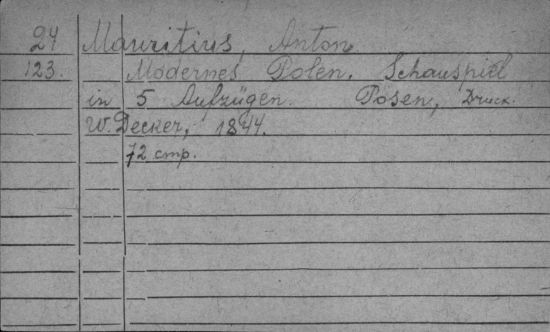 24 Mauritius, Anton
123. Modernes Polen. Schauspiel
in 5 Aufzügen. Posen, Druck.
W. Decker, 1844.
72 стр.